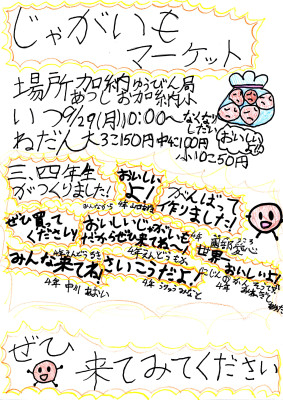 じゃがいも
マーケット
場所 加納ゆうびん局
あつしお加納小
いつ 9/29(月)10:00〜なくなり
しだい
ねだん 大3こ150円 中4こ100円
小10こ50円
おいしい
よ
三、四年生
がつくりました!
おいしい
よ!
がんばって
作りました!
ぜひ買って
ください!
おいしいじゃがいも
だからぜひ来てね〜!
世界一おいしいよ!
みんな来てね!
さいこうだよ!
4年 中川 あおい
ぜひ
来てみてください